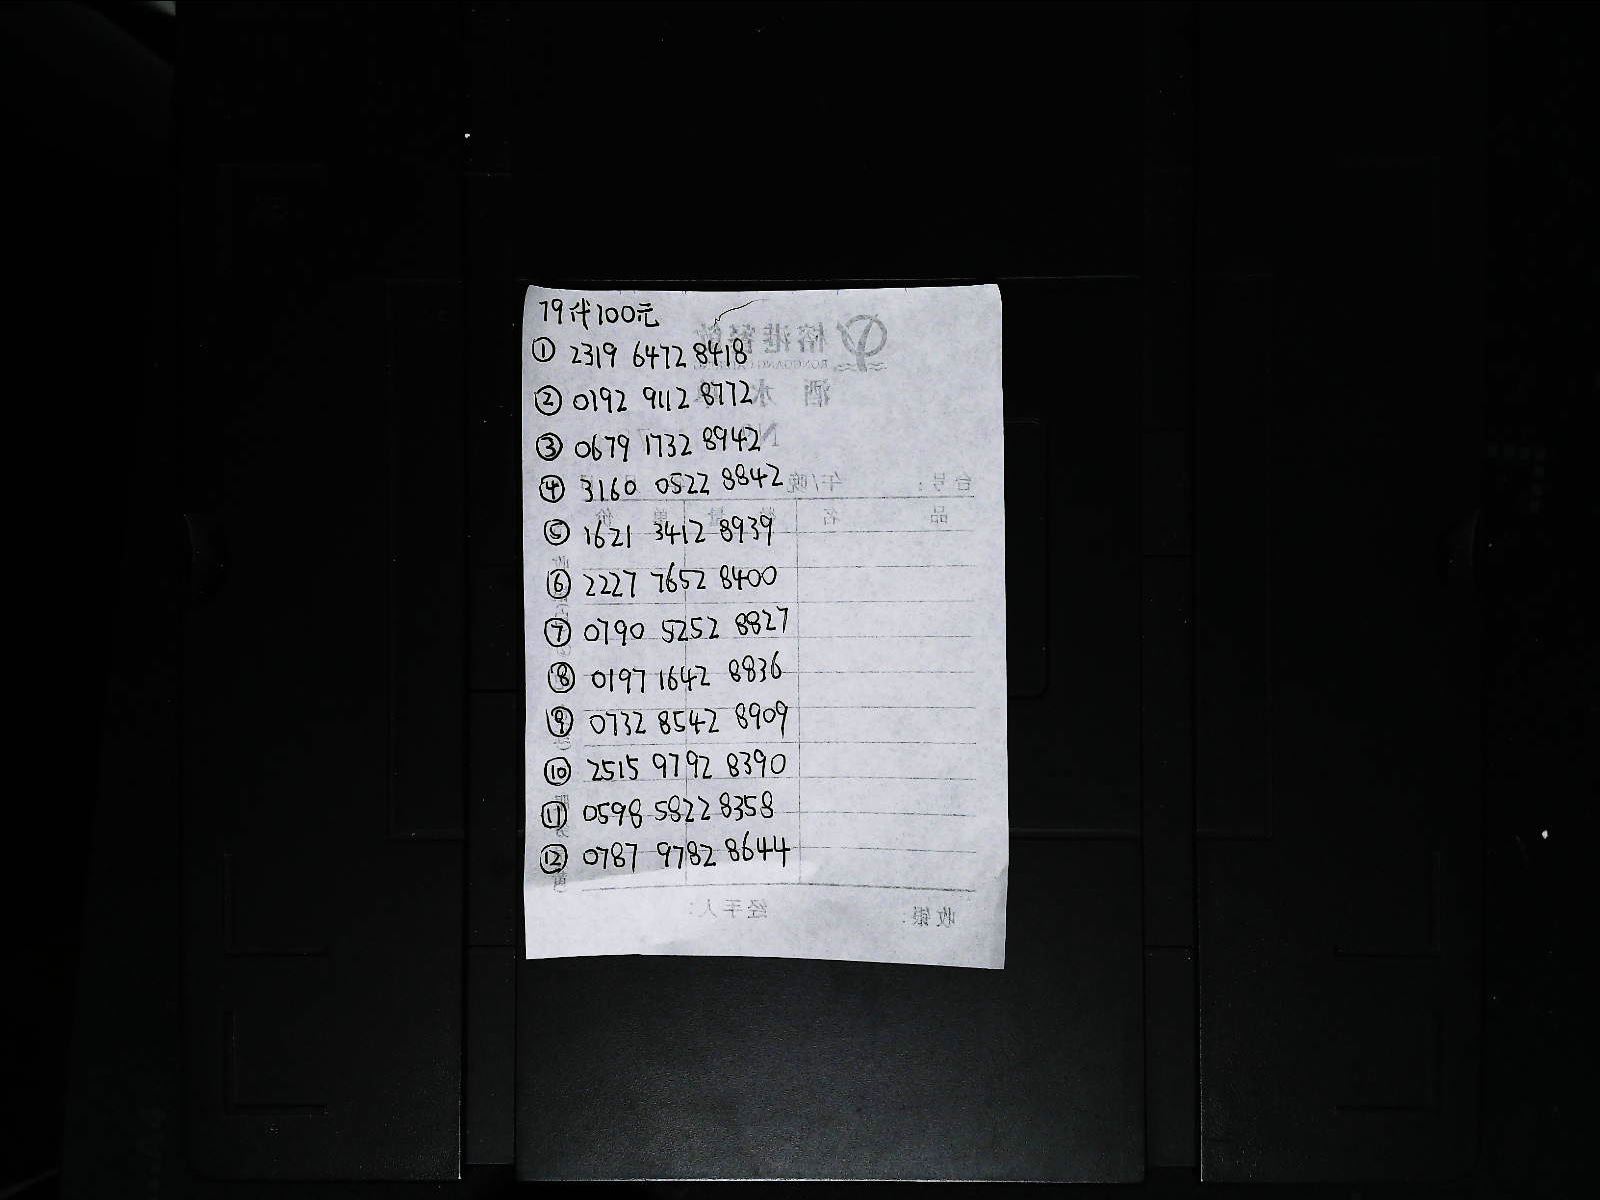 79代100元
① 2319 6472 8418
② 0192 9112 8772
③ 0679 1732 8942
④ 3160 0522 8842
⑤ 1621 3412 8939
⑥ 2227 7652 8400
⑦ 0790 5252 8827
⑧ 0197 1642 8836
⑨ 0732 8542 8909
⑩ 2515 9792 8390
⑪ 0598 5822 8358
⑫ 0787 9782 8644
榕港餐饮
酒水
台号：
午/晚
品名
数量
单价
经手人：
收银：